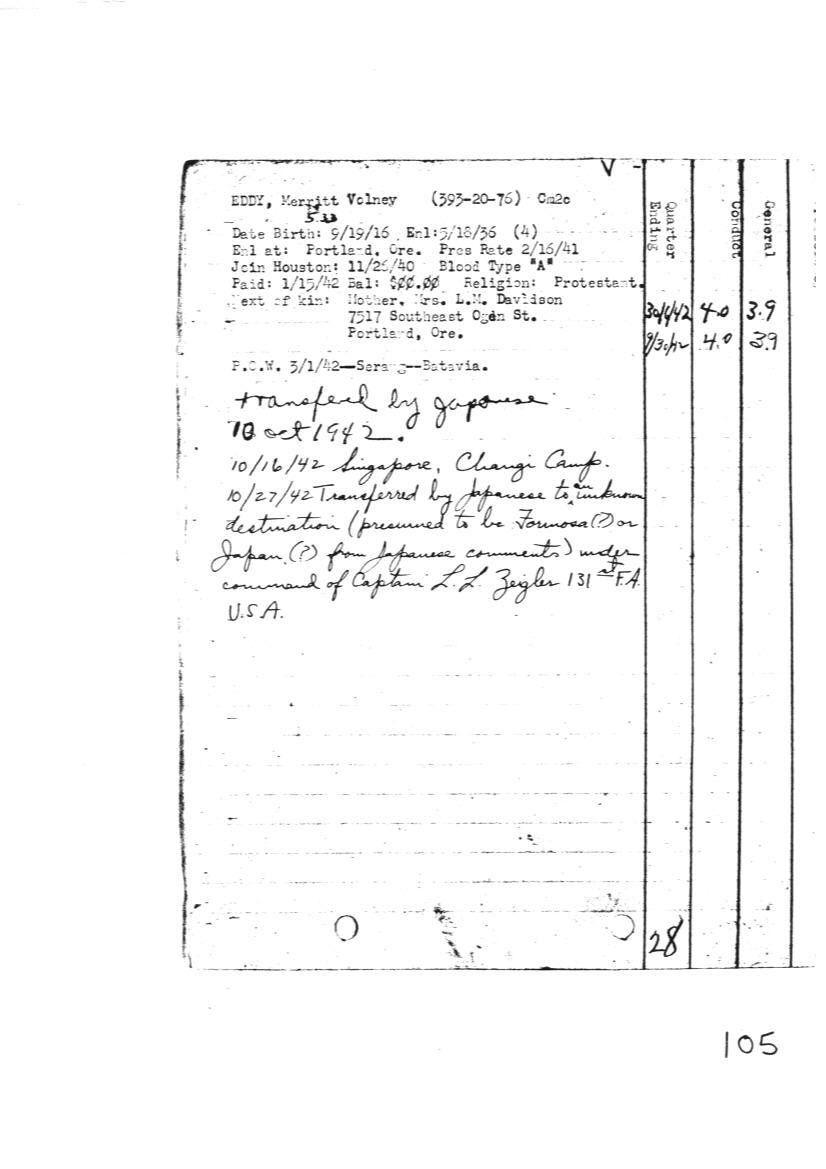 V -
EDDY, Merritt Volney (393-20-76) Cm2c
Date Birth: 9/19/16 Enl:5/18/36 (4)
Enl at: Portland, Ore. Pres Rate 2/16/41
Join Houston: 11/26/40 Blood Type "A"
Paid: 1/15/42 Bal: $00.00 Religion: Protestant.
Next of kin: Mother, Mrs. L.M. Davidson
7517 Southeast Ogden St.
Portland, Ore.
P.O.W. 3/1/42—Serang--Batavia.
transfered by Japanese
10 oct 1942.
10/16/42 Singapore, Changi Camp.
10/27/42 Transferred by Japanese to an unknown
destination (presumed to be Formosa(?) or
Japan (?) from Japanese comments) under
command of Captain L. L. Zeigler 131st F.A.
U.S.A.
Quarter Ending
Conduct
General
30/6/42 4.0 3.9
9/30/42 4.0 3.9
28
105